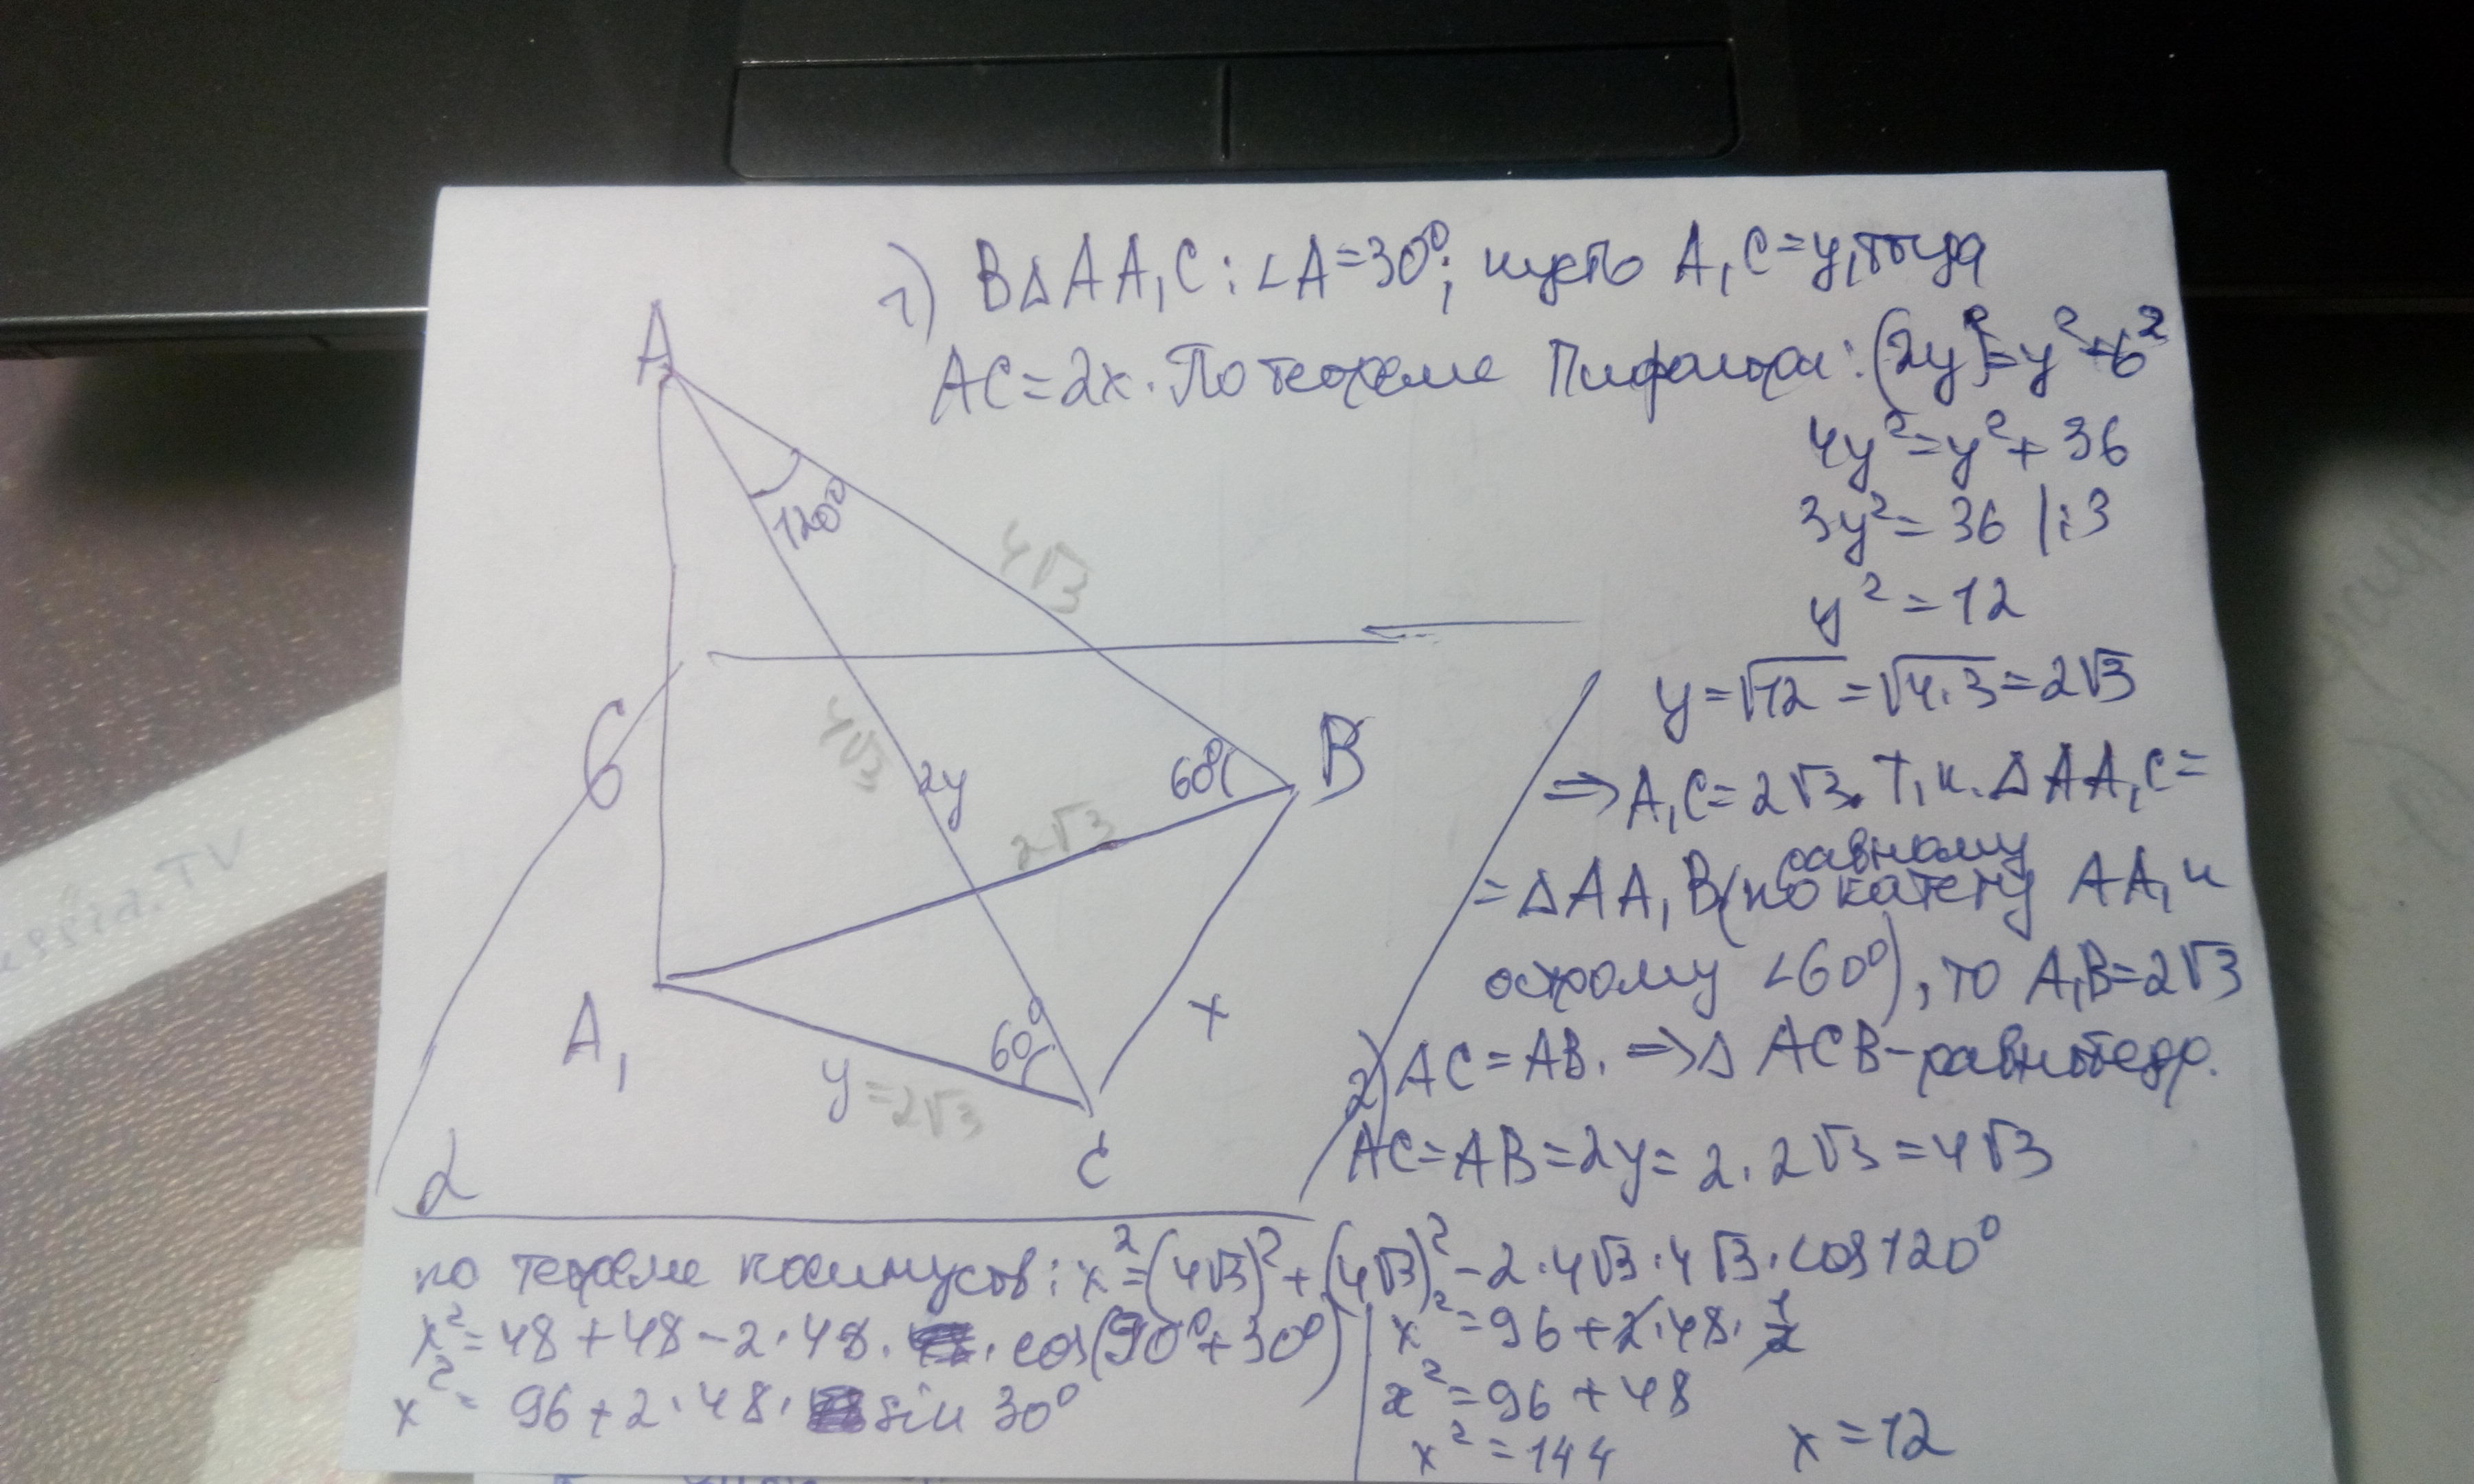 1) В △AA₁C: ∠A=30°; пусть A₁C=y, тогда
AC=2x. По теореме Пифагора: (2y)²=y²+6²
4y²=y²+36
3y²=36 |:3
y²=12
y=√12=√4·3=2√3
⇒A₁C=2√3. Т.к. △AA₁C=
=△AA₁B(по равному катету AA₁ и
острому ∠60°), то A₁B=2√3
2) AC=AB. ⇒△ ACB-равнобедр.
AC=AB=2y=2·2√3=4√3
A
120°
4√3
6
4√3
2y
60°
B
2√3
A₁
60°
x
y=2√3
C
α
по теореме косинусов: x²=(4√3)²+(4√3)²-2·4√3·4√3·cos120°
x²=48+48-2·48·cos(90°+30°)
x²=96+2·48·sin 30°
x²=96+2·48·1/2
x²=96+48
x²=144
x=12
essia.TV